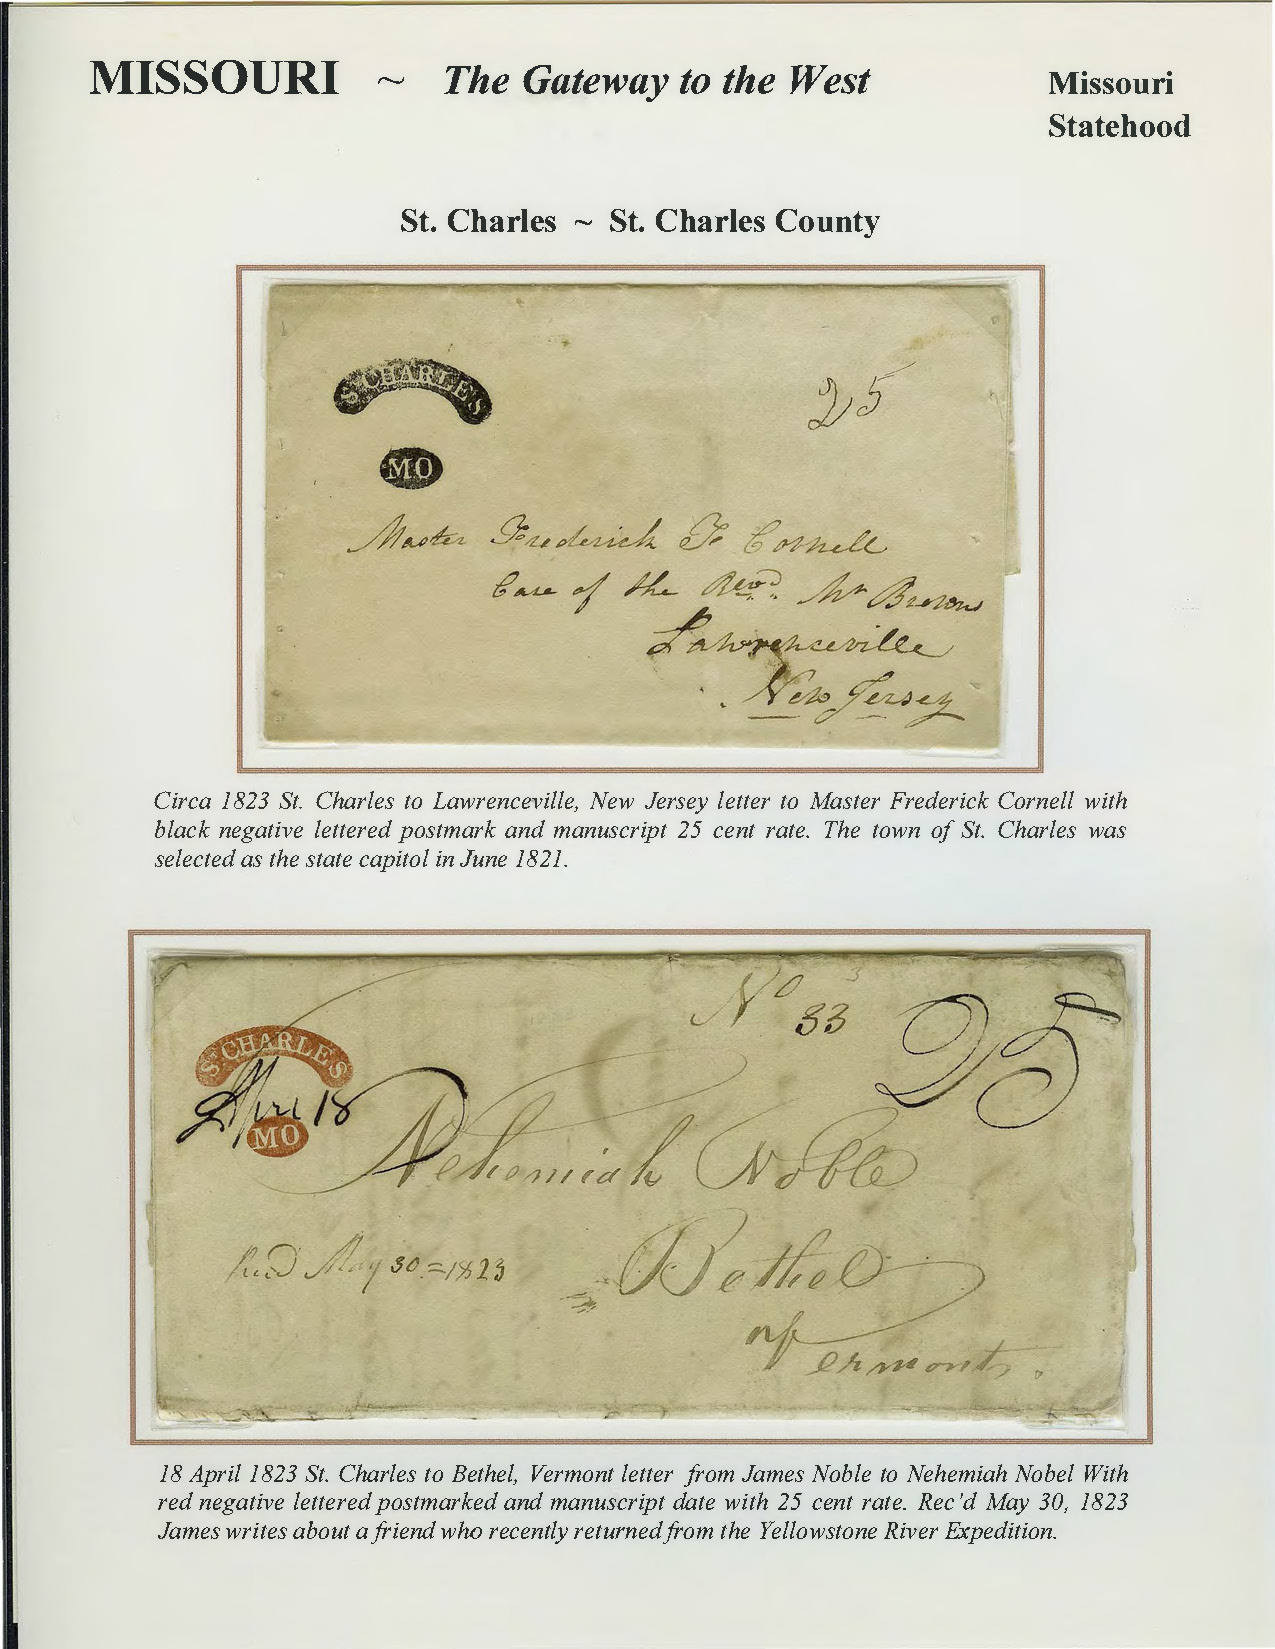 MISSOURI ~ The Gateway to the West
Missouri
Statehood
St. Charles ~ St. Charles County
ST CHARLES
25
MO
Master Frederick F Cornell
Care of the Revd. Mr Brown
Lawrenceville
New Jersey
Circa 1823 St. Charles to Lawrenceville, New Jersey letter to Master Frederick Cornell with
black negative lettered postmark and manuscript 25 cent rate. The town of St. Charles was
selected as the state capitol in June 1821.
No 33
25
ST CHARLES
April 18
MO
Nehemiah Noble
Recd May 30 = 1823
Bethel
Vermont.
18 April 1823 St. Charles to Bethel, Vermont letter from James Noble to Nehemiah Nobel With
red negative lettered postmarked and manuscript date with 25 cent rate. Rec'd May 30, 1823
James writes about a friend who recently returned from the Yellowstone River Expedition.